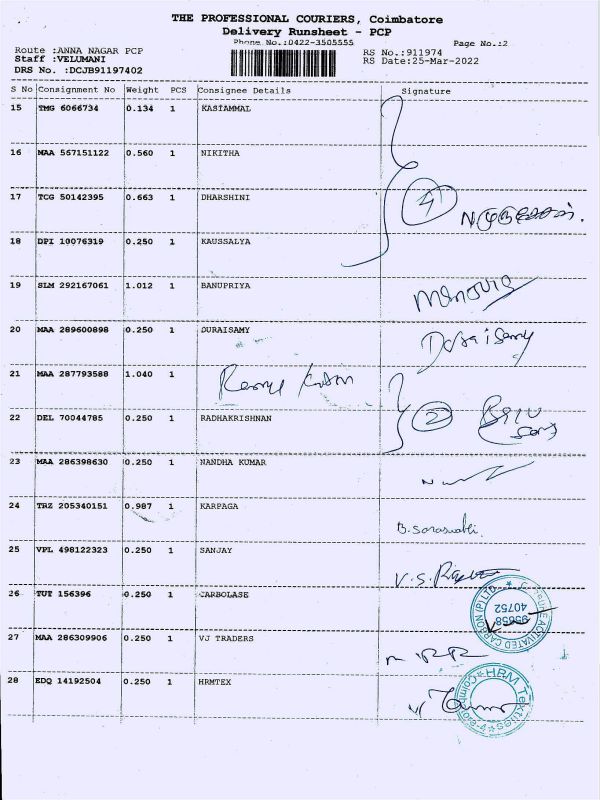 THE PROFESSIONAL COURIERS, Coimbatore
Delivery Runsheet - PCP
Phone No.:0422-3505555
Page No.:2
Route :ANNA NAGAR PCP
RS No.:911974
Staff :VELUMANI
RS Date:25-Mar-2022
DRS No. :DCJB91197402
S No Consignment No Weight PCS Consignee Details Signature
15 TMG 6066734 0.134 1 KASIAMMAL
16 MAA 567151122 0.560 1 NIKITHA
17 TCG 50142395 0.663 1 DHARSHINI
4
18 DPI 10076319 0.250 1 KAUSSALYA
19 SLM 292167061 1.012 1 BANUPRIYA
20 MAA 289600898 0.250 1 DURAISAMY
Doraisamy
21 MAA 287793588 1.040 1
22 DEL 70044785 0.250 1 RADHAKRISHNAN
2
23 MAA 286398630 0.250 1 NANDHA KUMAR
24 TRZ 205340151 0.987 1 KARPAGA
B.Saraswathi.
25 VPL 498122323 0.250 1 SANJAY
26 TUT 156396 0.250 1 CARBOLASE
ACTIVATED CARBON (P) LTD.
95658
40752
27 MAA 286309906 0.250 1 VJ TRADERS
28 EDQ 14192504 0.250 1 HRMTEX